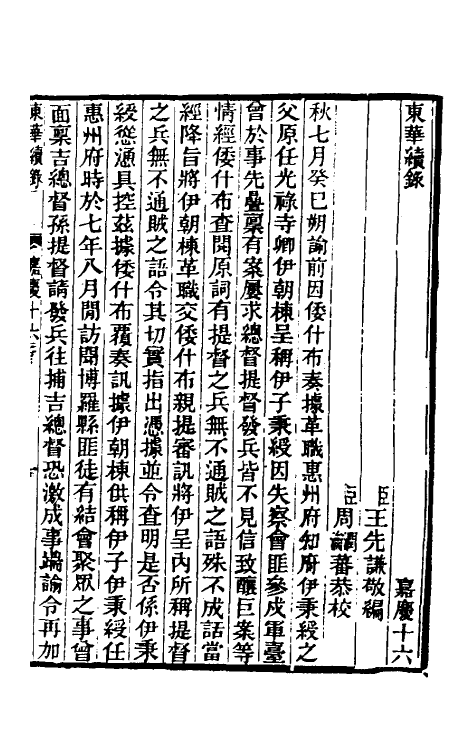 東華續錄
嘉慶十六
臣王先謙敬編
臣周蕃恭校
秋七月癸巳朔諭前因倭什布奏據革職惠州府知府伊秉綬之
父原任光祿寺卿伊朝棟呈稱伊子秉綬因失察會匪參戍軍臺
曾於事先疊稟有案屢求總督提督發兵皆不見信致釀巨案等
情經倭什布查閱原詞有提督之兵無不通賊之語殊不成話當
經降旨將伊朝棟革職交倭什布親提審訊將伊呈內所稱提督
之兵無不通賊之語令其切實指出憑據並令查明是否係伊秉
綬慫恿具控茲據倭什布覆奏訊據伊朝棟供稱伊子伊秉綬任
惠州府時於七年八月閒訪聞博羅縣匪徒有結會聚眾之事曾
面稟吉總督孫提督請發兵往捕吉總督恐激成事端諭令再加
東華續錄
嘉慶十六